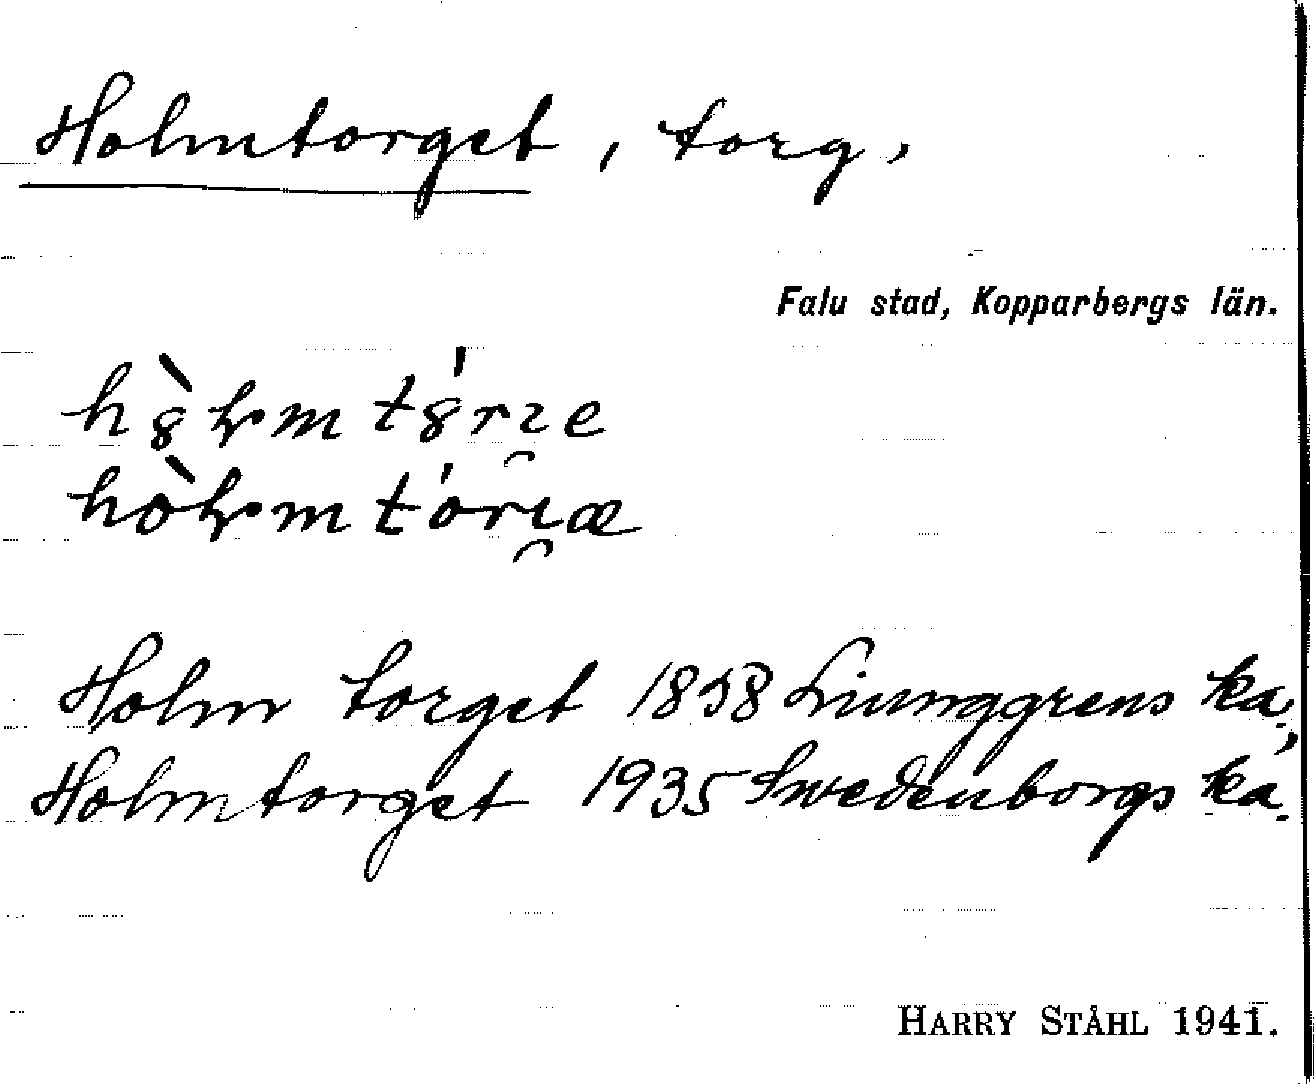 Holmtorget, torg,
Falu stad, Kopparbergs län.
Holm torget 1858 Liunggrens ka.,
Holmtorget 1935 Swedenborgs ka.
HARRY STÅHL 1941.